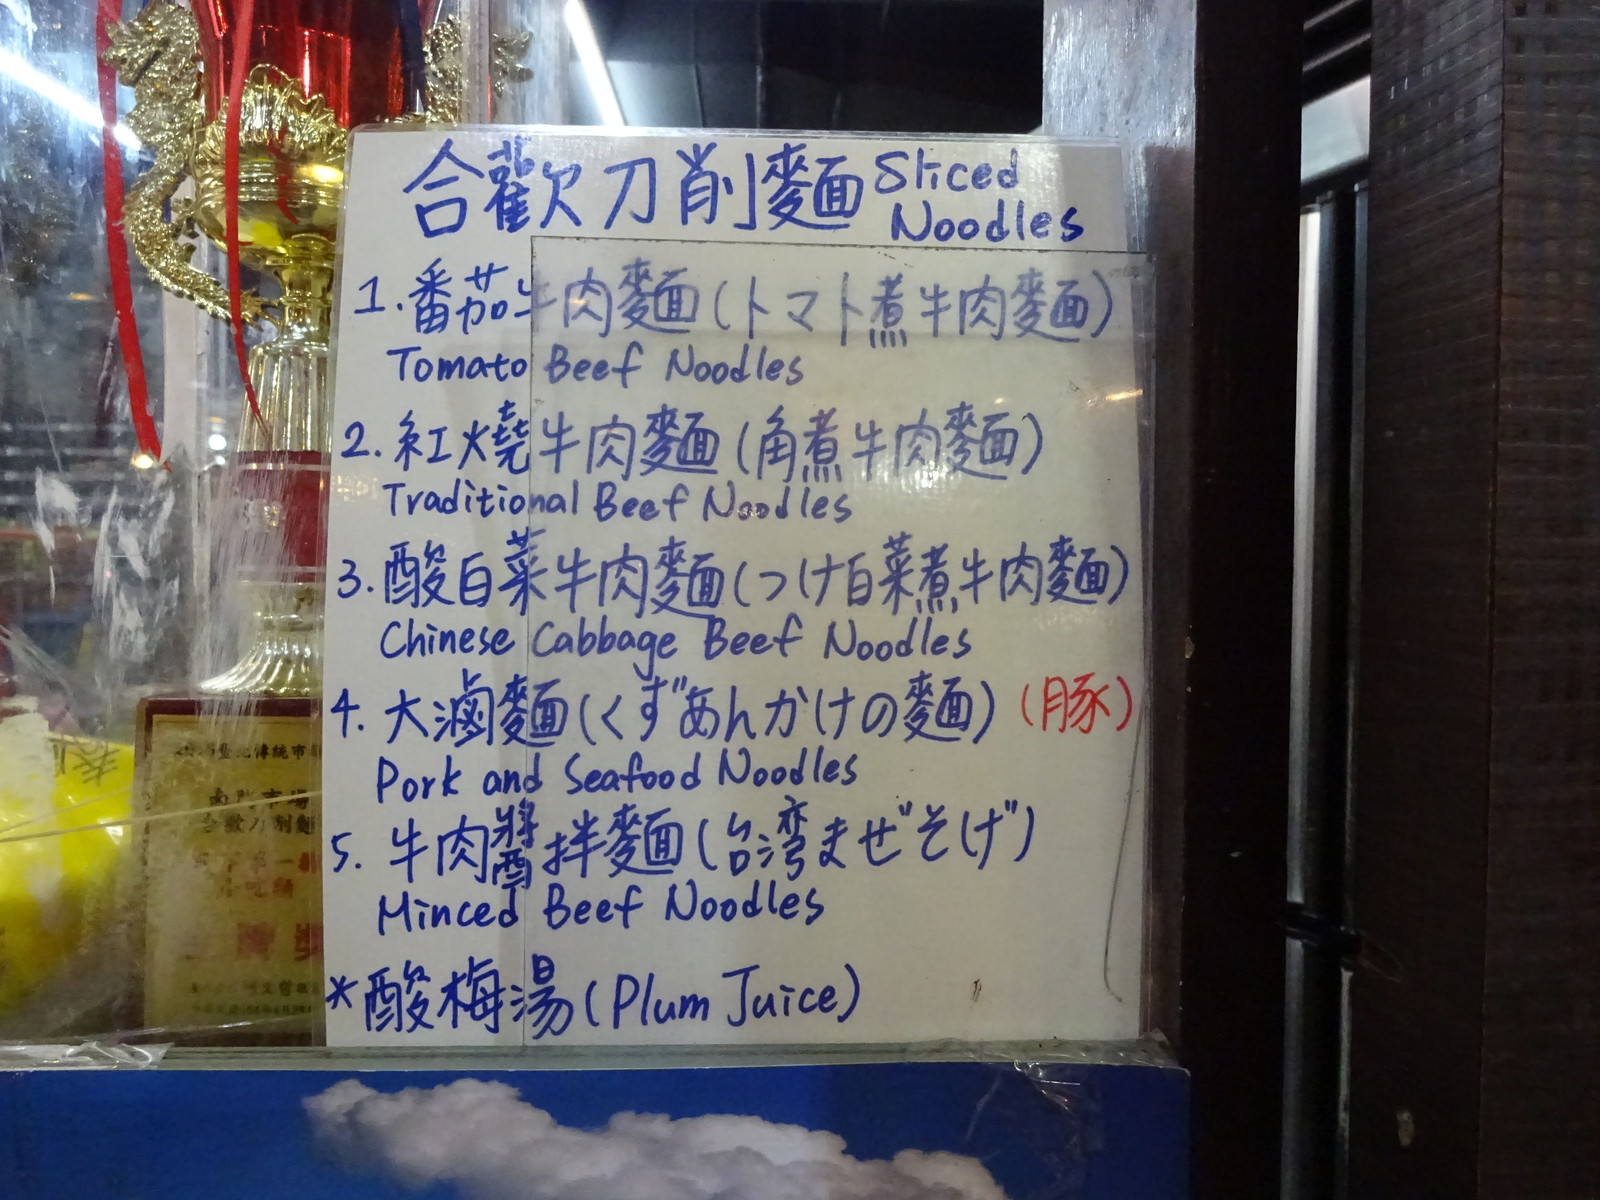 合歡刀削麵 Sliced Noodles
1. 番茄牛肉麵(トマト煮牛肉麥面)
Tomato Beef Noodles
2. 紅燒牛肉麵(角煮牛肉麥面)
Traditional Beef Noodles
3. 酸白菜牛肉麵(つけ白菜煮牛肉麥面)
Chinese Cabbage Beef Noodles
4. 大滷麵(くずあんかけの麥面) (豚)
Pork and Seafood Noodles
5. 牛肉醬拌麵(台湾まぜそば)
Minced Beef Noodles
*酸梅湯(Plum Juice)
臺北傳統市
市場
合歡刀削麵